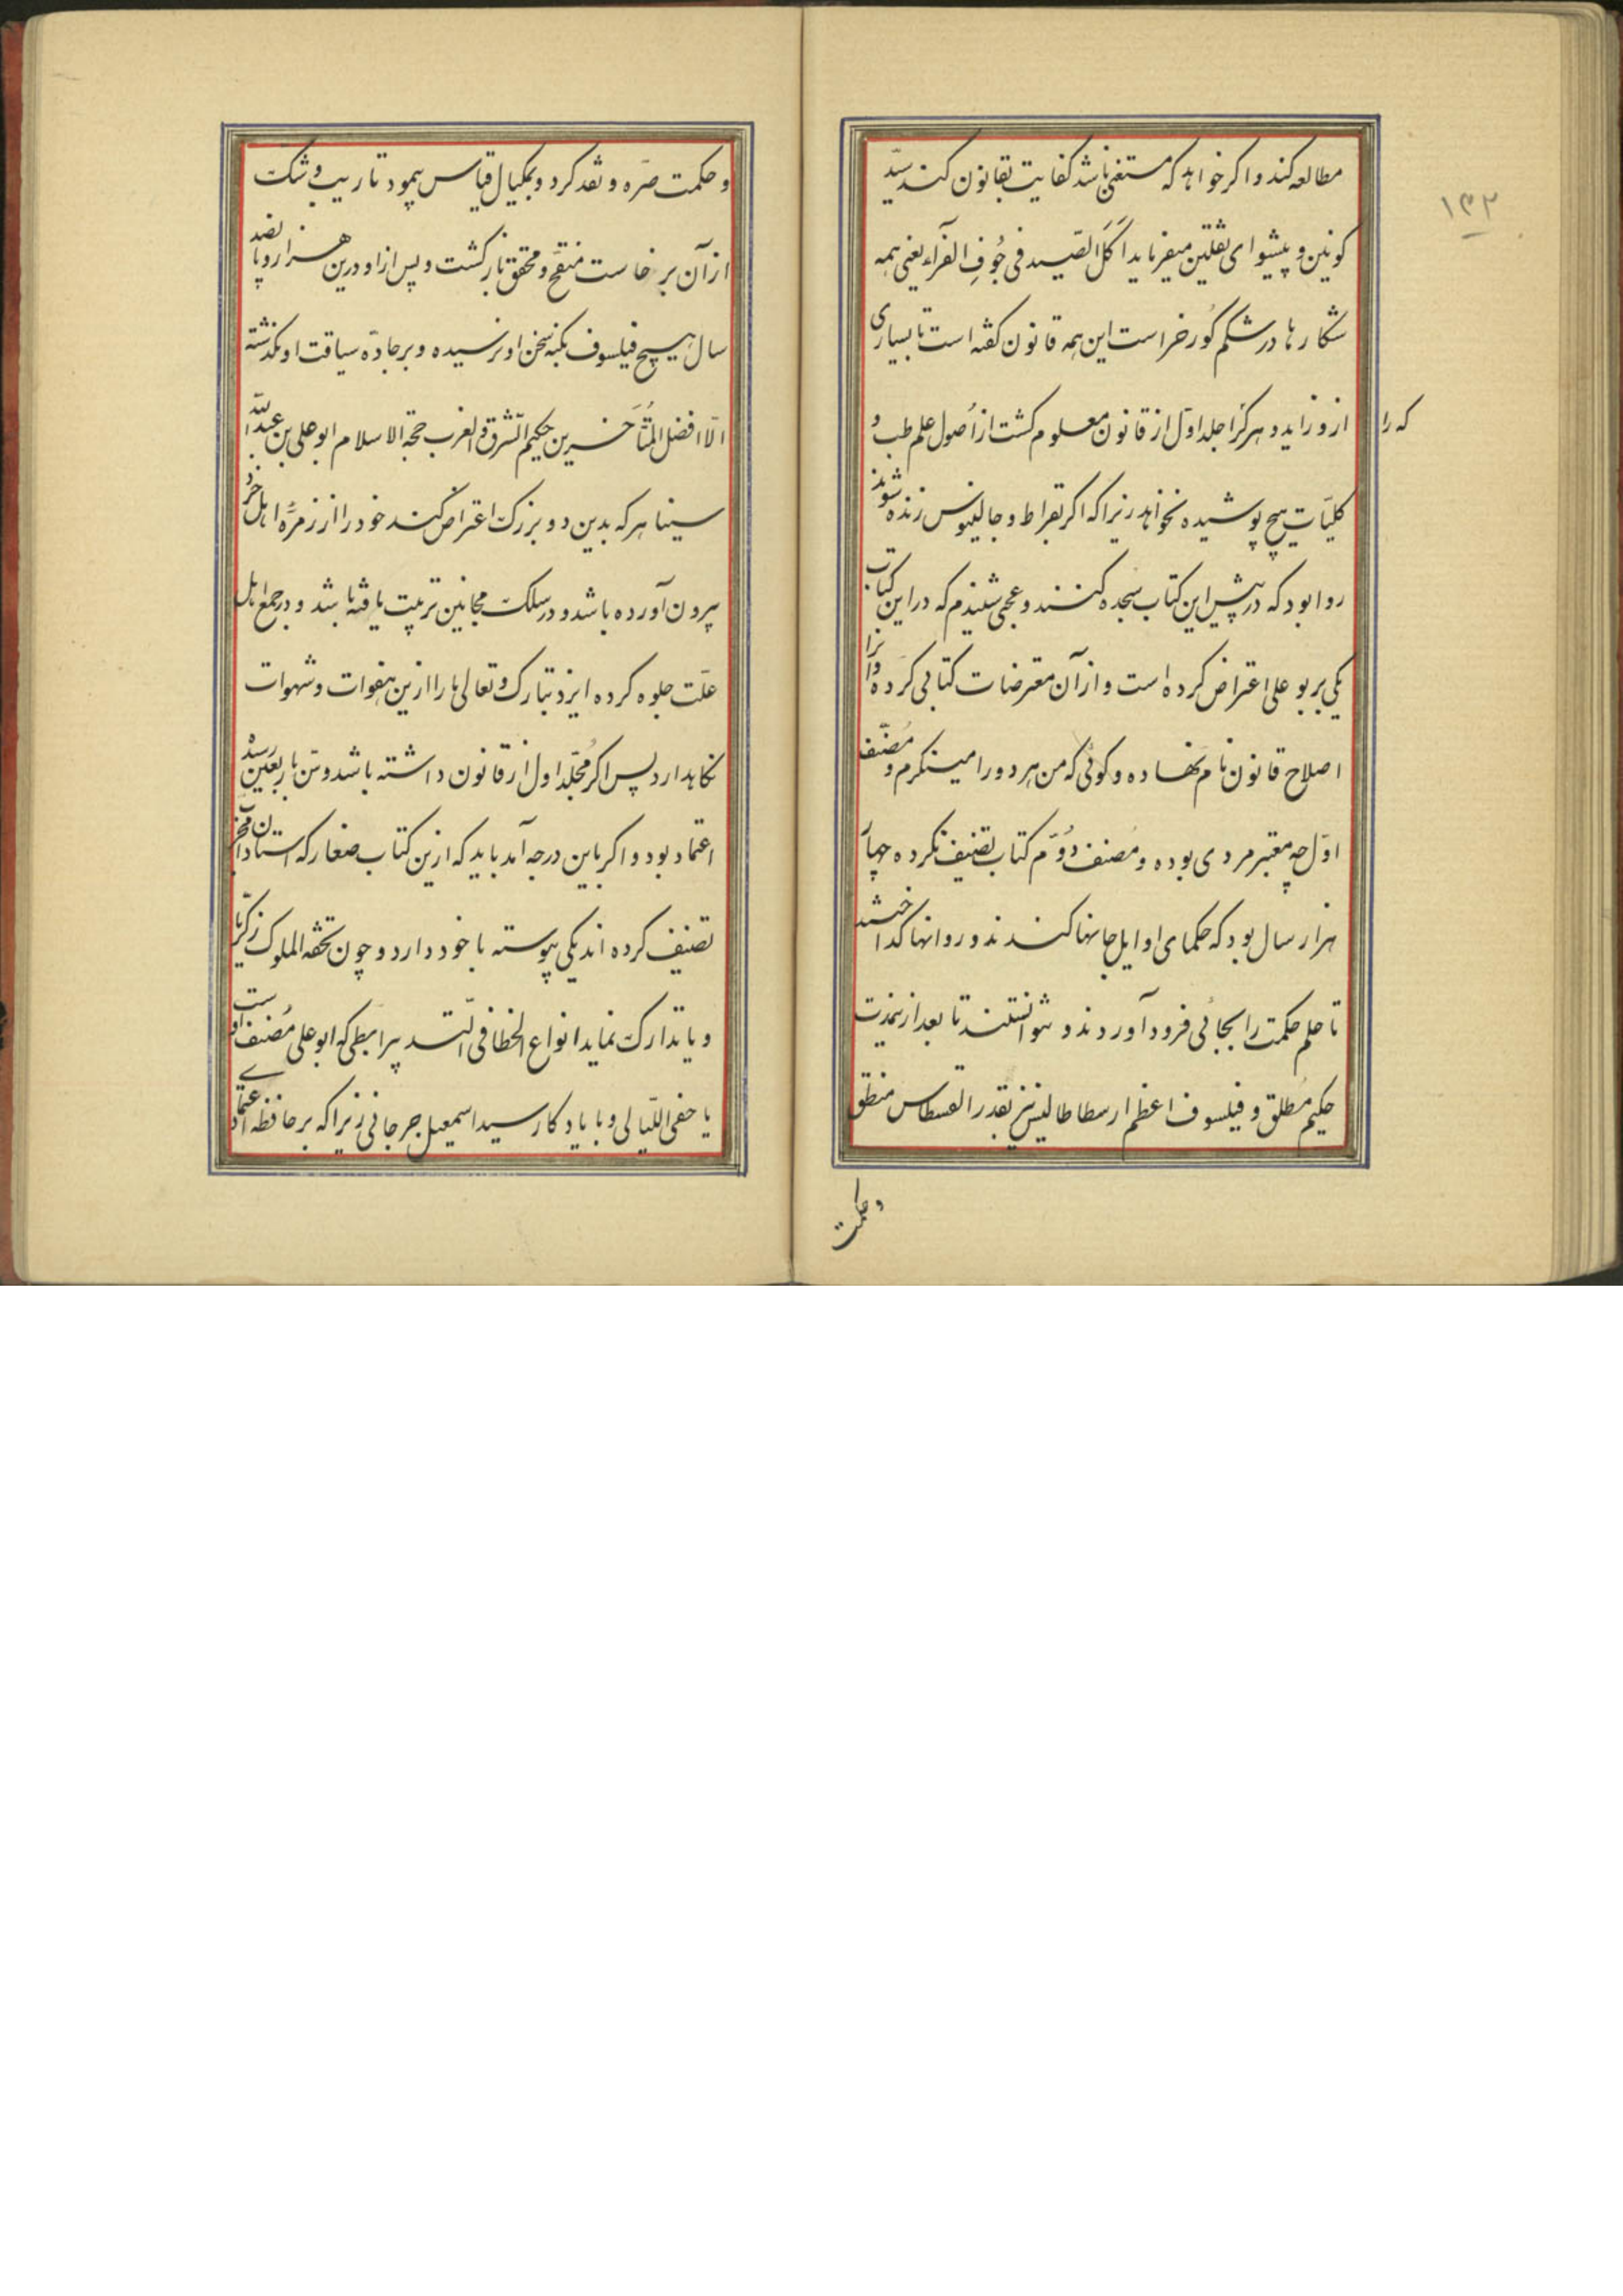 ۱۳۲
مطالعه کند و اکر خواهد که مستغنی باشد کفایت بقانون کند سیّد
کونین و پیشوای ثقلین میفرماید اکَلَ الصّید فی جُوفِ الفَرآء یعنی همه
شکارها در شکم کُورخر است این همه قانون کفته است تا بسیاری
ازو زاید و هر کرا جلد اوّل از قانون معلوم کشت از اُصول علم طب و
که را
کلیّات هیچ پوشیده نخواهد زیرا که اکر بقراط و جالینوس زنده شوند
روا بود که در پیش این کتاب سجده کنند و عجبی شنیدم که در این کتاب
یکی بر بو علی اعتراض کرده است و از آن معترضات کتابی کرده و آنرا
اصلاح قانون نام نهاده و کوئی که من هر دو را مینکرم و مُصنّف
اوّل چه معتبر مردی بوده و مُصنف دُوّم کتاب تصنیف نکرده چهار
هزار سال بود که حکمای اوایل جانها کندند و روانها کداختند
تا علم حکمت را بجائی فرود آوردند و نتوانستند تا بعد از نمدت
حکیم مُطلق و فیلسوف اعظم ارسطاطالیس نیز بقدر القسطاس منطق
و حکمت
و حکمت صرّه و نقد کرد و بمکیال قیاس پیمود تا ریب و شکّ
از آن برخاست منقّح و محقق بازکشت و پس از او درین هزار و پانصد
سال هیچ فیلسوف بکنه سخن او نرسیده و بر جادّه سیاقت او نکذشته
الّا افضل المُتَأخّرین حکیم الشّرق و الغرب حجة الاسلام ابو علی بن عبدالله
سینا هر که بدین دو بزرکّ اعتراض کند خود را از زمرُه اهل خرد
بیرون آورده باشد و در سلکّ مجانین ترتیب یافته باشد و در جمع اهل
علّت جلوه کرده ایزد تبارک و تعالی ما را ازین هفوات و شهوات
نکاهدارد پس اکر مُجلّد اول از قانون داشته باشد و سنّ باربعین رسد
اعتماد بود و اکر باین درجه آمد باید که ازین کتاب صغار که استادان مجرّب
تصنیف کرده اند یکی پیوسته با خود دارد و چون تحفه الملوک زکریّا
و یا تدارکّ نماید انواع الخطا فی التّدبیر امیطی که ابو علی مُصنف اوست
یا خفی اللّیالی و با یادکار سید اسمعیل جرجانی زیرا که بر حافظه اعتمادی